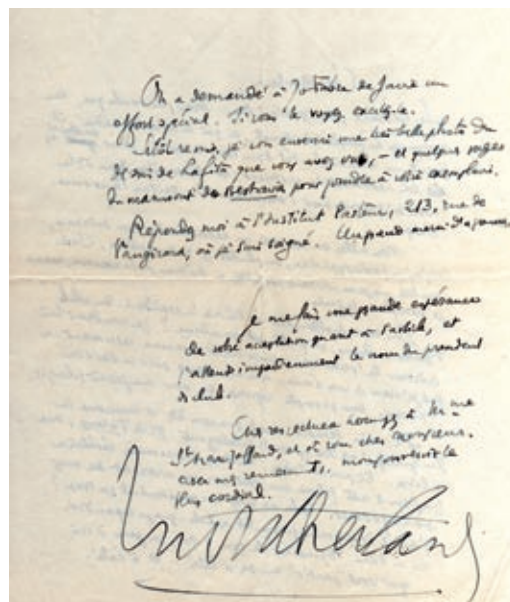 On a demandé à de faire un
effort spécial. Si vous le voyez
remis, je vous enverrai une très belle photo du
de que vous avez vue, – et quelques pages
du manuscrit de Bestiaires pour joindre à votre exemplaire.
Répondez moi à l'Institut Pasteur, 213, rue de
Vaugirard, où je suis soigné.
Je me fais une grande espérance
de votre acceptation quant à l'article, et
j'attends impatiemment le nom du président
du club.
Mes respectueux hommages à Mme
et à vous, cher Monsieur,
avec mes remerciements, mon souvenir le
plus cordial.
Montherlant